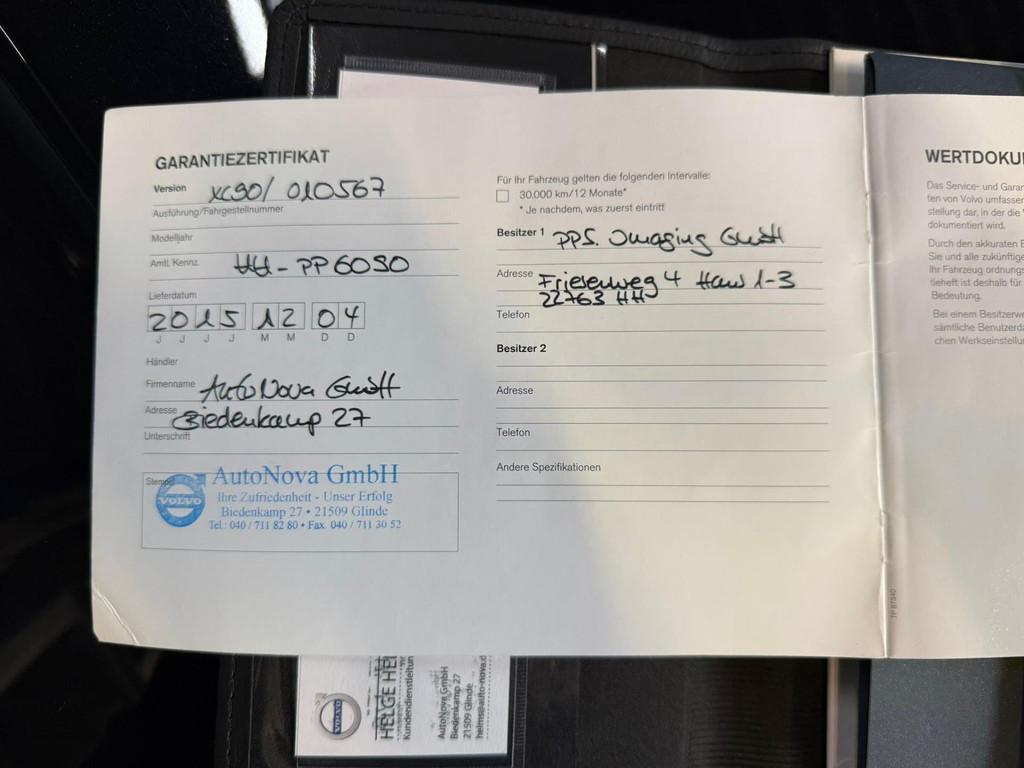 GARANTIEZERTIFIKAT
Version XC90/ 010567
Ausführung/Fahrgestellnummer
Modelljahr
Amtl. Kennz. HH-PP6090
Lieferdatum
2015 12 04
J J J J M M D D
Händler
Firmenname AutoNova GmbH
Adresse Biedenkamp 27
Unterschrift
Stempel
VOLVO
AutoNova GmbH
Ihre Zufriedenheit - Unser Erfolg
Biedenkamp 27 • 21509 Glinde
Tel.: 040 / 711 82 80 • Fax. 040 / 711 30 52
Für Ihr Fahrzeug gelten die folgenden Intervalle:
30.000 km/12 Monate*
* Je nachdem, was zuerst eintritt
Besitzer 1 PPS. Imaging GmbH
Adresse Friesenweg 4 Haus 1-3
22763 HH
Telefon
Besitzer 2
Adresse
Telefon
Andere Spezifikationen
WERTDOKU
Das Service- und Garan
ten von Volvo umfasse
stellung dar, in der die
dokumentiert wird.
Durch den akkuraten E
Sie und alle zukünftige
Ihr Fahrzeug ordnungs
tieheft ist deshalb für
Bedeutung.
Bei einem Besitzerwe
sämtliche Benutzerda
chen Werkseinstellu
VOLVO
HELGE HEI
Kundendienstleitun
AutoNova GmbH
Biedenkamp 27
21509 Glinde
helms@auto-nova.d